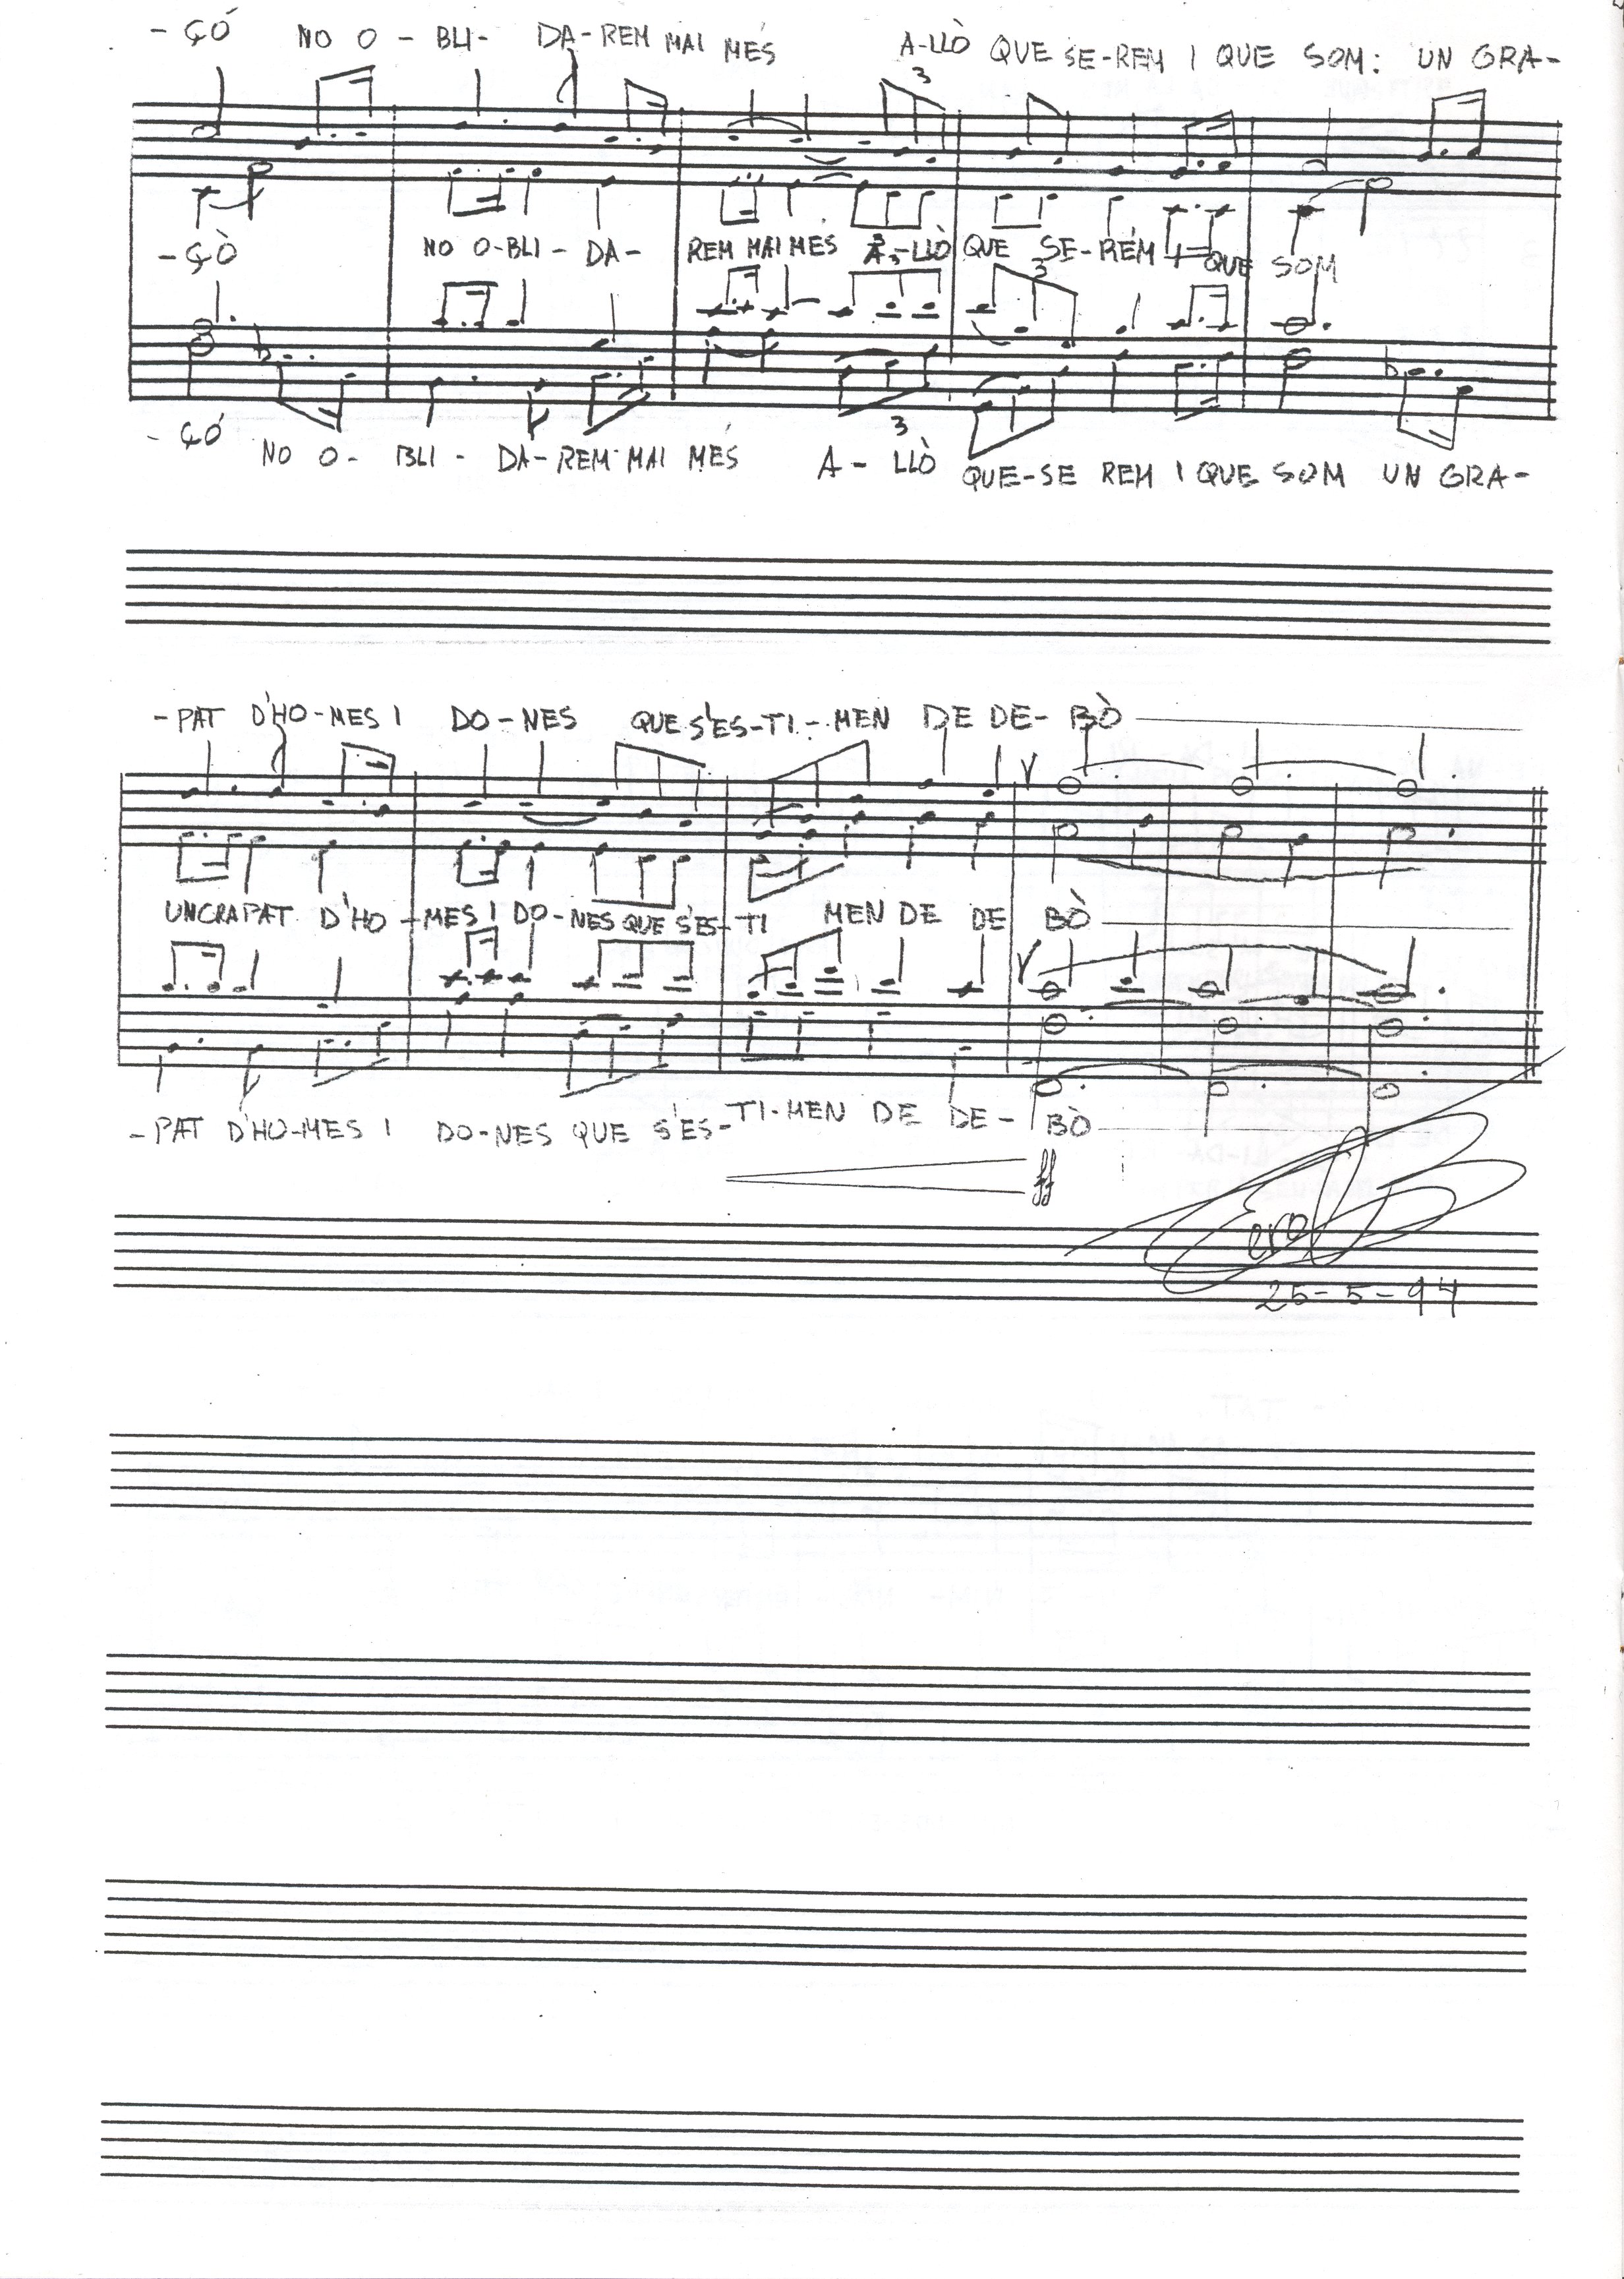 - ÇÓ NO O - BLI - DA-REM MAI MÉS A-LLÒ QUE SE-REM I QUE SOM: UN GRA-
3
- ÇÒ NO O-BLI-DA- REM MAI MÉS A-LLÒ QUE SE-REM I QUE SOM
3
3
- ÇÓ NO O- BLI - DA-REM MAI MÉS A - LLÒ QUE-SE REM I QUE SOM UN GRA-
-PAT D'HO-MES I DO-NES QUE S'ES-TI-MEN DE DE- BÒ
UN GRAPAT D'HO-MES I DO-NES QUE S'ES-TI MEN DE DE BÒ
-PAT D'HO-MES I DO-NES QUE S'ES-TI-MEN DE DE- BÒ
ff
25-5-94